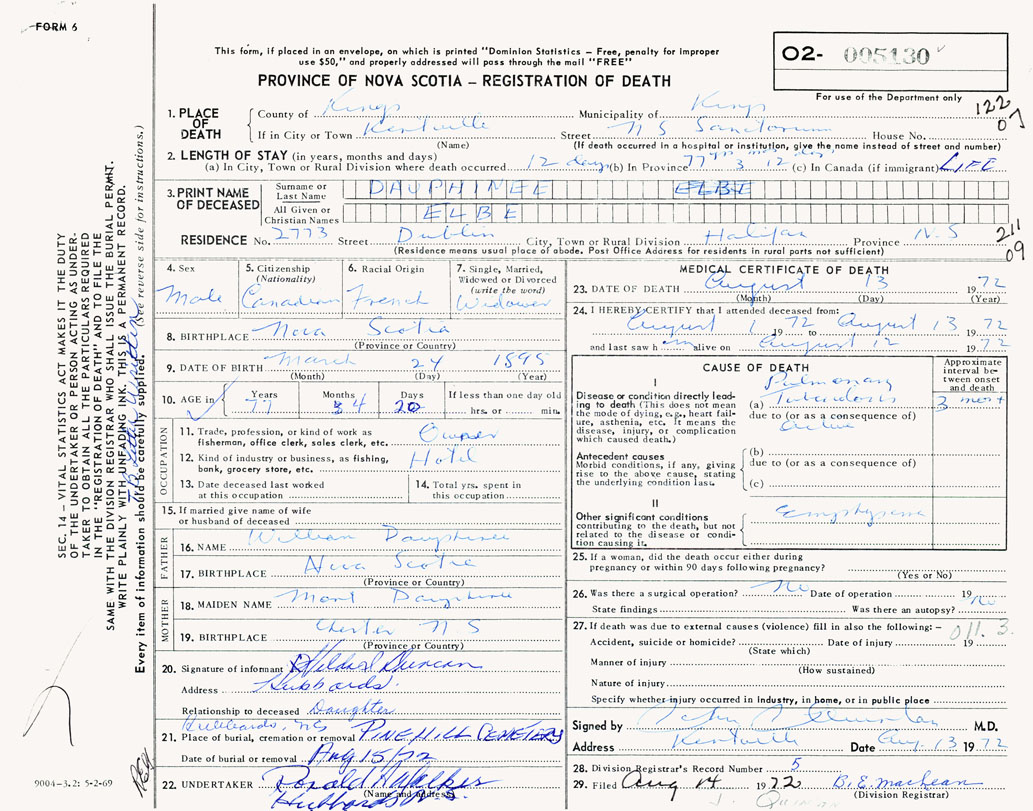 FORM 6
This form, if placed in an envelope, on which is printed "Dominion Statistics – Free, penalty for improper
use $50," and properly addressed will pass through the mail "FREE"
PROVINCE OF NOVA SCOTIA – REGISTRATION OF DEATH
O2- 005130
For use of the Department only
122
07
1. PLACE OF DEATH
County of Kings Municipality of Kings
If in City or Town Kentville Street N S Sanatorium House No.
(Name) (If death occurred in a hospital or institution, give the name instead of street and number)
2. LENGTH OF STAY (in years, months and days)
(a) In City, Town or Rural Division where death occurred 12 days (b) In Province 77 yrs 3 mos 12 days (c) In Canada (if immigrant) LIFE
3. PRINT NAME OF DECEASED
Surname or Last Name DAUPHINEE ELBE
All Given or Christian Names ELBE
RESIDENCE No. 2773 Street Dublin City, Town or Rural Division Halifax Province N.S
(Residence means usual place of abode. Post Office Address for residents in rural parts not sufficient)
211
09
4. Sex Male
5. Citizenship (Nationality) Canadian
6. Racial Origin French
7. Single, Married, Widowed or Divorced (write the word) Widower
8. BIRTHPLACE Nova Scotia
(Province or Country)
9. DATE OF BIRTH March 24 1895
(Month) (Day) (Year)
10. AGE in Years 77 Months 4 Days 20 If less than one day old
hrs. or min.
OCCUPATION
11. Trade, profession, or kind of work as fisherman, office clerk, sales clerk, etc. Owner
12. Kind of industry or business, as fishing, bank, grocery store, etc. Hotel
13. Date deceased last worked at this occupation
14. Total yrs. spent in this occupation
15. If married give name of wife or husband of deceased
FATHER
16. NAME William Dauphinee
17. BIRTHPLACE Nova Scotia
(Province or Country)
MOTHER
18. MAIDEN NAME Dauphinee
19. BIRTHPLACE Chester N S
(Province or Country)
20. Signature of informant Duncan
Address Hubbards
Relationship to deceased Daughter
Hubbards, NS
21. Place of burial, cremation or removal PINE HILL CEMETERY
Date of burial or removal Aug 15/72
22. UNDERTAKER Ronald A Walker
(Name and address)
Hubbards N.S.
MEDICAL CERTIFICATE OF DEATH
23. DATE OF DEATH August 13 1972
(Month) (Day) (Year)
24. I HEREBY CERTIFY that I attended deceased from:
August 1 1972 to August 13 1972
and last saw him alive on August 12 1972
CAUSE OF DEATH
Approximate interval between onset and death
I
Disease or condition directly leading to death (This does not mean the mode of dying, e.g., heart failure, asthenia, etc. It means the disease, injury, or complication which caused death.)
Pulmonary
(a) Tuberculosis
3 mont
due to (or as a consequence of)
Active
Antecedent causes
Morbid conditions, if any, giving rise to the above cause, stating the underlying condition last.
(b)
due to (or as a consequence of)
(c)
II
Other significant conditions contributing to the death, but not related to the disease or condition causing it.
Emphysema
25. If a woman, did the death occur either during pregnancy or within 90 days following pregnancy?
(Yes or No)
26. Was there a surgical operation? No Date of operation 19
State findings Was there an autopsy? No
27. If death was due to external causes (violence) fill in also the following: –
011.3
Accident, suicide or homicide? Date of injury 19
(State which)
Manner of injury
(How sustained)
Nature of injury
Specify whether injury occurred in industry, in home, or in public place
Signed by M.D.
Address Kentville Date Aug. 13 1972
28. Division Registrar's Record Number 5
29. Filed Aug 14 1972 B.E. MacLean
(Division Registrar)
SEC. 14 – VITAL STATISTICS ACT MAKES IT THE DUTY
OF THE UNDERTAKER OR PERSON ACTING AS UNDER-
TAKER TO OBTAIN ALL THE PARTICULARS REQUIRED
IN THE "REGISTRATION OF DEATH" AND TO FILE THE
SAME WITH THE DIVISION REGISTRAR WHO SHALL ISSUE THE BURIAL PERMIT.
WRITE PLAINLY WITH UNFADING INK. THIS IS A PERMANENT RECORD.
Every item of information should be carefully supplied. (See reverse side for instructions.)
9004–3.2: 5-2-69